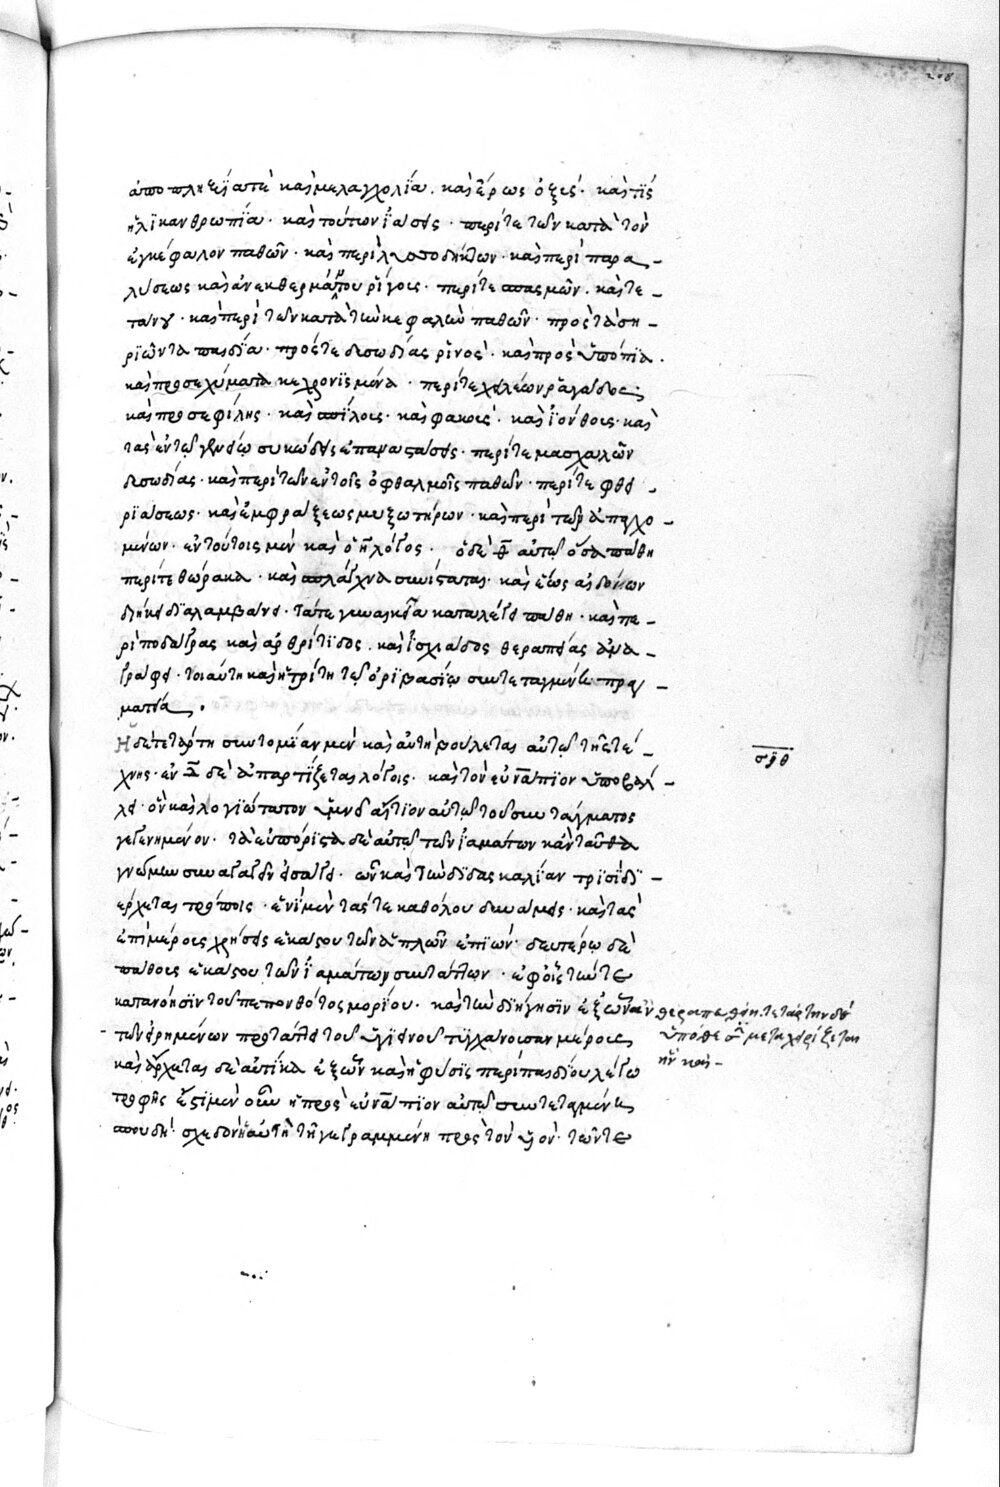 208
ἀποπληξίατε καὶ μελαγχολία. καὶ ἔρως ὀξύς. καὶ τίς
ἡ λικανθρωπία. καὶ τούτων ἴασις. περί τε τῶν κατὰ τὸν
ἐγκέφαλον παθῶν. καὶ περὶ λυσσοδήκτων. καὶ περὶ παρα-
λύσεως καὶ ἀνεκθερμάντου ῥίγους. περί τε σπασμῶν. καὶ τε-
τάνου. καὶ περὶ τῶν κατὰ τὴν κεφαλὴν παθῶν. πρὸς τὰ ση-
ριῶντα παιδία. πρός τε δυσωδίας ῥινός. καὶ πρὸς ὑπόπια.
καὶ προσεχύματα κεχρονισμένα. περί τε χειλέων ῥαγάδος
καὶ προσεφίλης. καὶ σπίλοις. καὶ φακοῖς. καὶ ἰόνθοις. καὶ
τὰς ἐν τῷ γενείῳ συκώδεις ἐπαναστάσεις. περί τε μασχαλῶν
δυσωδίας. καὶ περὶ τῶν ἐν τοῖς ὀφθαλμοῖς παθῶν. περί τε φθει
ριάσεως. καὶ ἐμφράξεως μυξωτήρων. καὶ περὶ τῶν ἀπαγχο-
μένων. ἐν τούτοις μὲν καὶ ὁ η λόγος. ὁ δὲ θ αὐτῷ ὅσα πάθη
περί τε θώρακα. καὶ σπλάγχνα συνίσταται. καὶ ἕως αἰδοίων
διήκει διαλαμβάνει. τά τε γυναικεῖα καταλέγει πάθη. καὶ πε-
ρὶ ποδάγρας καὶ ἀρθρίτιδος. καὶ ἰσχιάδος θεραπείας ἀνα-
γράφει. τοιαύτη καὶ ἡ τρίτη τῷ ὀριβασίῳ συντεταγμένη πραγ-
ματεία.
Ἡ δὲ τετάρτη συντομίαν μὲν καὶ αὐτὴ βούλεται αὐτῷ τῆς τέ-
χνης. ἐν δ δὲ ἀπαρτίζεται λόγοις. καὶ τὸν εὐνάπιον ὑποβάλ-
λει. ὃν καὶ λογιώτατον ὑμνεῖ αἴτιον αὐτῷ τοῦ συντάγματος
γεγενημένον. τὰ εὐπόριστα δὲ αὐτῷ τῶν ἰαμάτων κἀνταῦθα
γνώμην συναγαγεῖν εἰσάγει. ὧν καὶ τὴν διδασκαλίαν τρισὶ δι-
έρχεται τρόποις. ἑνὶ μὲν τάς τε καθόλου δυνάμεις. καὶ τὰς
ἐπὶ μέρους χρήσεις ἑκάστου τῶν ἁπλῶν ἐπιών. δευτέρω δὲ
πάθους ἑκάστου τῶν ἰαμάτων συντάττων. ἐφ οἷς τήν τε
κατανόησιν τοῦ πεπονθότος μορίου. καὶ τὴν διήγησιν ἐξ ὧν ἄν
τῶν εἰρημένων προτάττει τοῦ ὑγιεινοῦ τυγχάνουσαν μέρους
καὶ ἄρχεται δὲ αὐτίκα ἐξ ὧν καὶ ἡ φύσις περὶ παιδίου λέγω
τροφῆς ἔστι μὲν οὖν ἡ πρὸς εὐνάπιον αὐτῷ συντεταγμένη
σπουδὴ. σχεδὸν ἡ αὐτὴ τῇ γεγραμμένῃ πρὸς τὸν υἱόν. τῶν τε
σιθ
θεραπευθείη. τετάρτην δὲ
ὑπόθεσιν μεταχειρίζεται
ἣν καὶ-